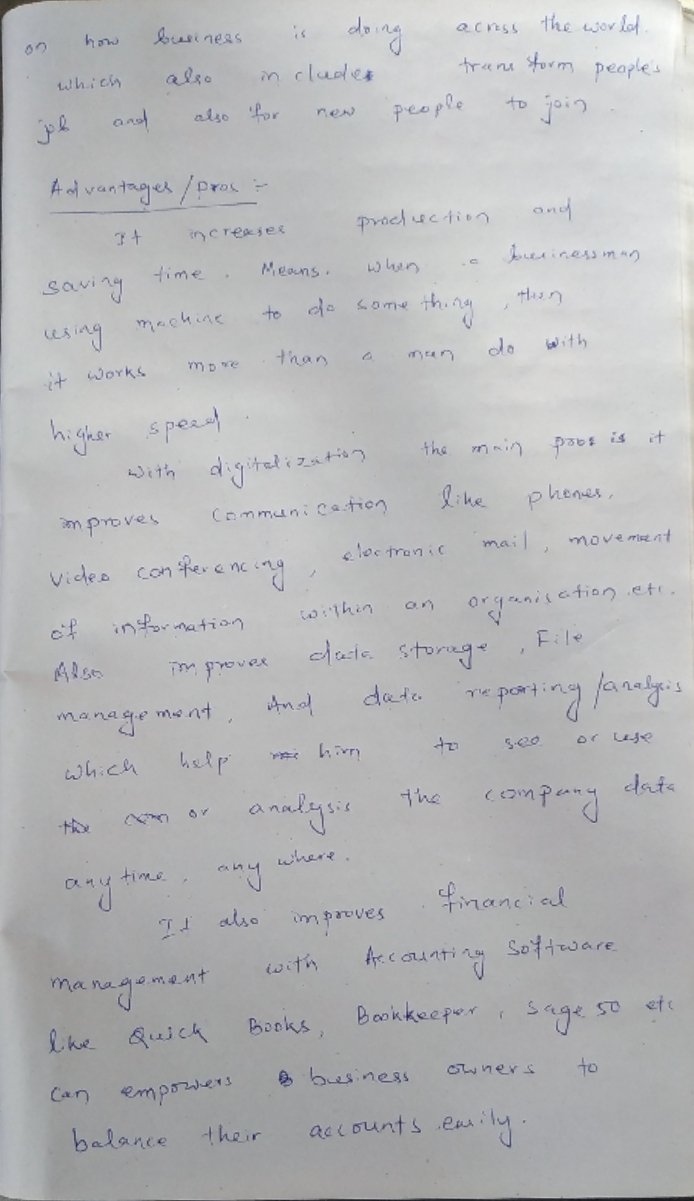 on how business is doing across the world.
which also includes transform people's
job and also for new people to join.
Advantages/pros :-
It increases production and
saving time. Means. when a businessman
using machine to do something, then
it works more than a man do with
higher speed.
with digitalization the main pros is it
improves communication like phones,
video conferencing, electronic mail, movement
of information within an organisation etc.
Also improves data storage, File
management, And data reporting/analysis
which help him to see or use
or analysis the company data
anytime, any where.
It also improves financial
management with Accounting Software
like Quick Books, Bookkeeper, Sage 50 etc
can empowers business owners to
balance their accounts easily.